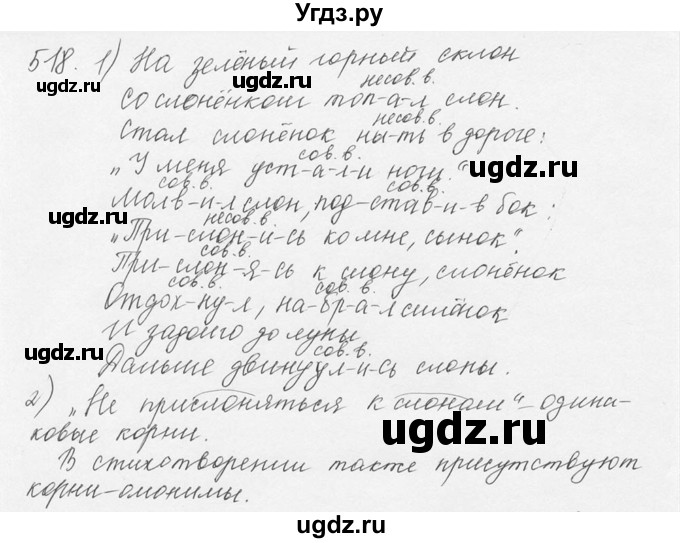 Угдз.ру
518. 1) На зелёный горный склон
несов.в.
Со слонёнком топ-а-л слон.
несов.в.
Стал слонёнок ны-ть в дороге:
сов.в.
„У меня уст-а-л-и ноги."
сов.в. сов.в.
Молв-и-л слон, под-став-и-в бок:
несов.в.
„При-слон-и-сь ко мне, сынок".
сов.в.
При-слон-я-сь к слону, слонёнок
сов.в. сов.в.
Отдох-ну-л, на-бр-а-л силёнок
И задолго до луны
сов.в.
Дальше двинуул-и-сь слоны.
2) „Не прислоняться к слонам" - одина-
ковые корни.
В стихотворении также присутствуют
корни-омонимы.
ugdz.ru
ugdz.ru
ugdz.ru
ugdz.ru
ugdz.ru
ugdz.ru
ugdz.ru
ugdz.ru